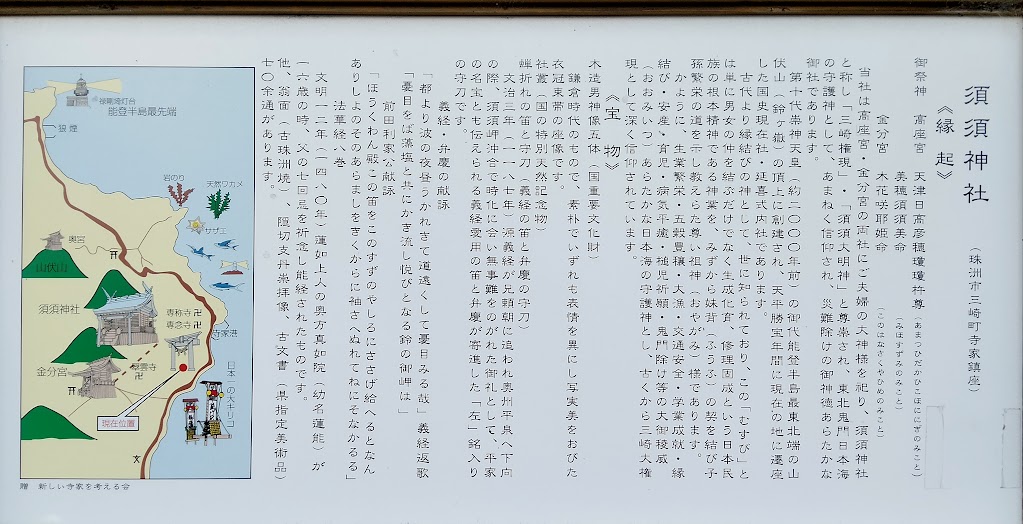 須須神社
(珠洲市三崎町寺家鎮座)
《縁起》
御祭神 高座宮 天津日高彦穂瓊瓊杵尊
(あまつひだかひこほににぎのみこと)
美穂須須美命
(みほすずみのみこと)
金分宮 木花咲耶姫命
(このはなさくやひめのみこと)
当社は高座宮・金分宮の両社にご夫婦の大神様を祀り、須須神社
と称し「三崎権現」・「須須大明神」と尊崇され、東北鬼門日本海
の守護神として、あまねく信仰され、災難除けの御神徳あらたかな
御社であります。
第十代崇神天皇(約二〇〇〇年前)の御代能登半島最東北端の山
伏山(鈴ヶ嶽)の頂上に創建され、天平勝宝年間に現在の地に遷座
した国史現在社・延喜式内社であります。
古代より縁結びの神として、世に知られており、この「むすび」と
は単に男女の仲を結ぶだけでなく生成化育、修理固成という日本民
族の根本精神である神業を、みずから妹背(ふうふ)の契を結び子
孫繁栄の道を示し教えられた尊い祖神(おやがみ)様であります。
かように、生業繁栄・五穀豊穣・大漁・交通安全・学業成就・縁
結び・安産・育児・病気平癒・樋児祈願・鬼門除け等の大御稜威
(おおみいつ)あらたかな日本海の守護神とし、古くから三崎大権
現として深く信仰されています。
《宝物》
木造男神像五体(国重要文化財)
鎌倉時代のもので、素朴でいずれも表情を異にし写実美をおびた
衣冠束帯の座像です。
社叢(国の特別天然記念物)
蝉折れの笛と守刀(義経の笛と弁慶の守刀)
文治三年(一一八七年)源義経が兄頼朝に追われ奥州平泉へ下向
の際、須須岬沖合で時化に会い無事難をのがれた御礼として、平家
の名宝とも伝えられる義経愛用の笛と弁慶が寄進した「左」銘入り
の守刀です。
義経・弁慶の献詠
「都より波の夜昼うかれきて道遠くして憂目みる哉」義経返歌
「憂目をば藻塩と共にかき流し悦びとなる鈴の御岬は」
前田利家公献詠
「ほうくわん殿この笛をこのすずのやしろにささげ給へるとなん
ありしよのそのあらましをきくからに袖さへぬれてねにそなかるる」
法華経八巻
文明一二年(一四八〇年)蓮如上人の奥方真如院(幼名蓮能)が
(六歳の時、父の七回忌を祈念し能経されたものです。
他、翁面(古珠洲焼)、隠切支丹崇拝像、古文書(県指定美術品)
七〇余通があります。
禄剛埼灯台
能登半島最先端
狼煙
岩のり
天然ワカメ
サザエ
奥宮
山伏山
須須神社
専称寺
専念寺
寺家港
金分宮
翠雲寺
現在位置
日本一の大キリコ
文
贈 新しい寺家を考える会